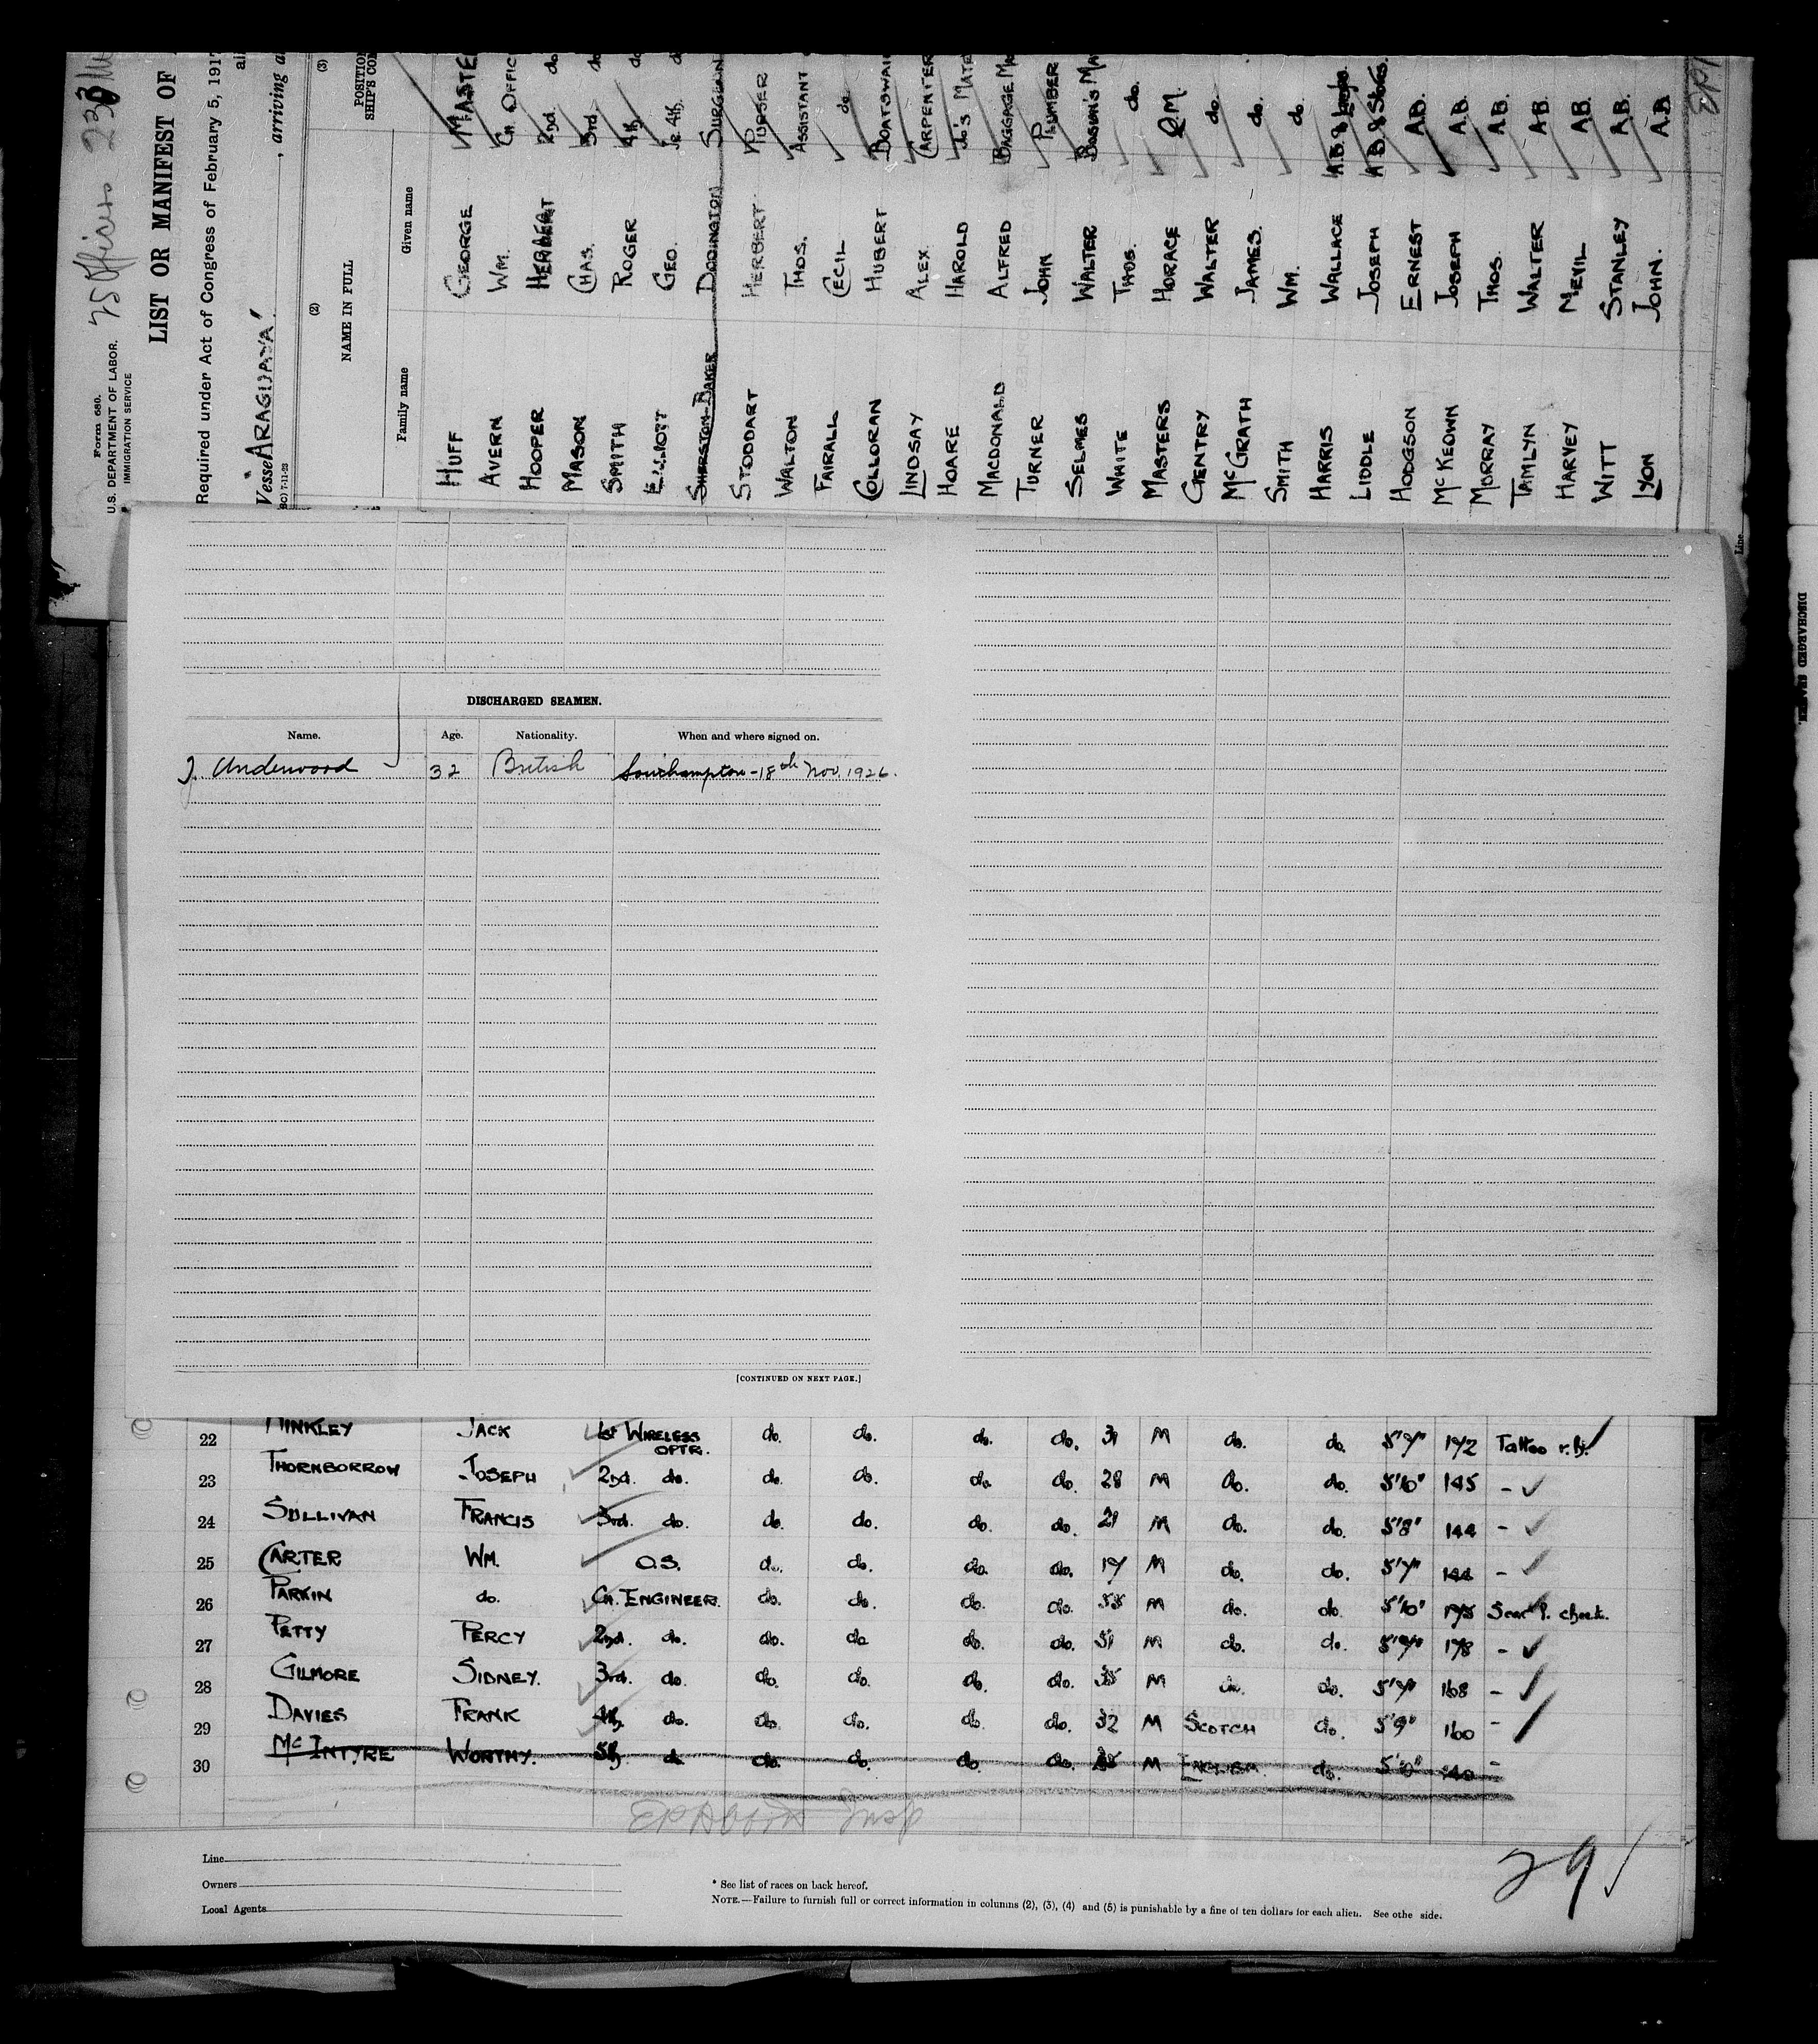 Form 680.
U.S. DEPARTMENT OF LABOR.
IMMIGRATION SERVICE
75 Officers
LIST OR MANIFEST OF
Required under Act of Congress of February 5, 191
Vessel "ARAGUAYA"
, arriving a
(2)
(3)
NAME IN FULL
POSITION
SHIP'S CO
Family name Given name
HUFF GEORGE MASTE
AVERN WM. CH. OFFIC
HOOPER HERBERT 2nd. do
MASON CHAS. 3rd. do
SMITH ROGER 4th. do
ELLIOTT GEO. Jr. 4th. d
SHERSTON-BAKER DODINGTON SURGEON
STODDART HERBERT PURSER
WALTON THOS. ASSISTANT
FAIRALL CECIL do.
COLLORAN HUBERT BOATSWAI
LINDSAY ALEX. CARPENTER
HOARE HAROLD do's MATE
MACDONALD ALFRED BAGGAGE MA
TURNER JOHN PLUMBER
SELMES WALTER BOSUN'S MA
WHITE THOS. do.
MASTERS HORACE Q.M.
GENTRY WALTER do.
McGRATH JAMES. do.
SMITH WM. do.
HARRIS WALLACE A.B. & Lamps.
LIDDLE JOSEPH A.B. & Stores.
HODGSON ERNEST A.B.
McKEOWN JOSEPH A.B.
MURRAY THOS. A.B.
TAMLYN WALTER A.B.
HARVEY NEVIL A.B.
WITT STANLEY A.B.
LYON JOHN. A.B
Line
DISCHARGED SEAMEN.
Name. Age. Nationality. When and where signed on.
J. Underwood 32 British Southampton - 18th Nov. 1926.
[CONTINUED ON NEXT PAGE.]
22 HINKLEY JACK 1st WIRELESS OPTR. do. do. do. do. 31 M do. do. 5'7" 172 Tattoo
23 THORNBORROW JOSEPH 2nd. do. do. do. do. do. 28 M do. do. 5'10" 145 -
24 SULLIVAN FRANCIS 3rd. do. do. do. do. do. 21 M do. do. 5'8" 144 -
25 CARTER WM. O.S. do. do. do. do. 17 M do. do. 5'7" 144 -
26 PARKIN do. CH. ENGINEER. do. do. do. do. M do. do. 5'10" 175 Scar cheek.
27 PETTY PERCY 2nd. do. do. do do. do. 51 M do. do. 178 -
28 GILMORE SIDNEY. 3rd. do. do. do. do. do. M do. do. 5'7" 168 -
29 DAVIES FRANK 4th. do. do. do. do. do. 32 M SCOTCH do. 5'9" 160 -
30 McINTYRE WORTHY. 5th do. do. do. do. do. M ENGLISH. do. 140 -
Line
Owners
Local Agents
* See list of races on back hereof.
NOTE.—Failure to furnish full or correct information in columns (2), (3), (4) and (5) is punishable by a fine of ten dollars for each alien. See othe side.
29
DISCHARGED SEAMEN.